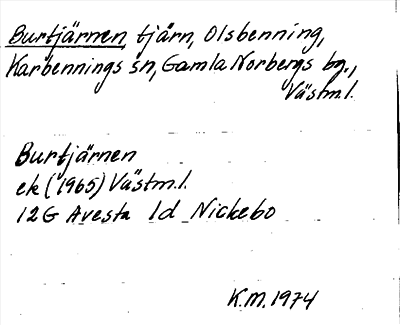 Burtjärnen, tjärn, Olsbenning,
Karbennings sn, Gamla Norbergs bg.,
Västm.l.
Burtjärnen
ek (1965) Västm.l.
12G Avesta 1d Nickebo
K.M. 1974